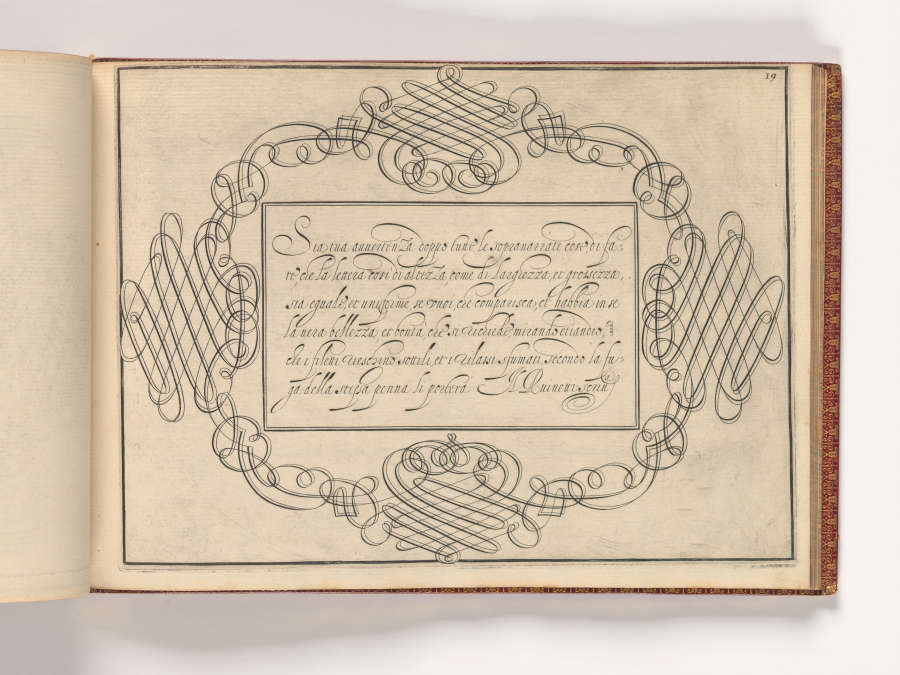 19
Sia tua auuertenza doppo tutte le sopranarrate cose, di fa-
re, che la lettera così di altezza, come di larghezza, et grossezza,
sia eguale, et uniforme se vuoi, che comparisca, et habbia in se
la uera bellezza, et bontà, che si richiede, mirando etiandio,
che i fileti rieschino sottili, et i sfumati, secondo la fu-
ga della stessa penna li porterà